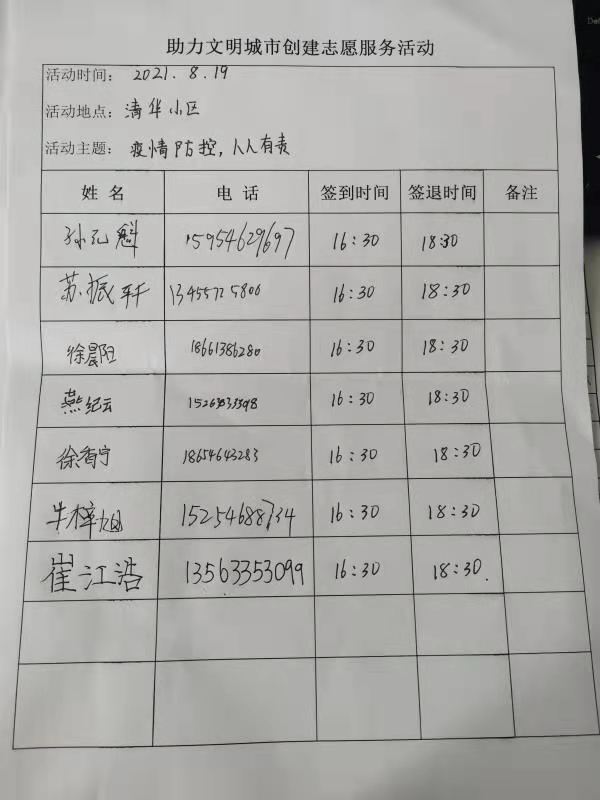 助力文明城市创建志愿服务活动
活动时间: 2021.8.19
活动地点: 清华小区
活动主题: 疫情防控,人人有责
姓名 电话 签到时间 签退时间 备注
15954629697 16:30 18:30
苏振轩 16:30 18:30
徐晨阳 18661386280 16:30 18:30
燕纪云 16:30 18:30
徐香宁 18654643283 16:30 18:30
牛梓旭 15254688734 16:30 18:30
崔江浩 13563353099 16:30 18:30.